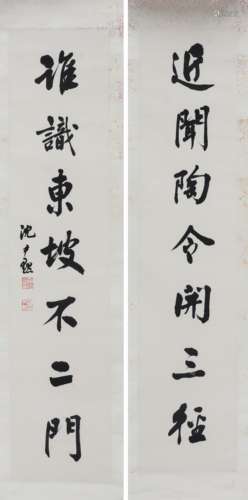 近聞陶令開三徑
誰識東坡不二門
沈尹默